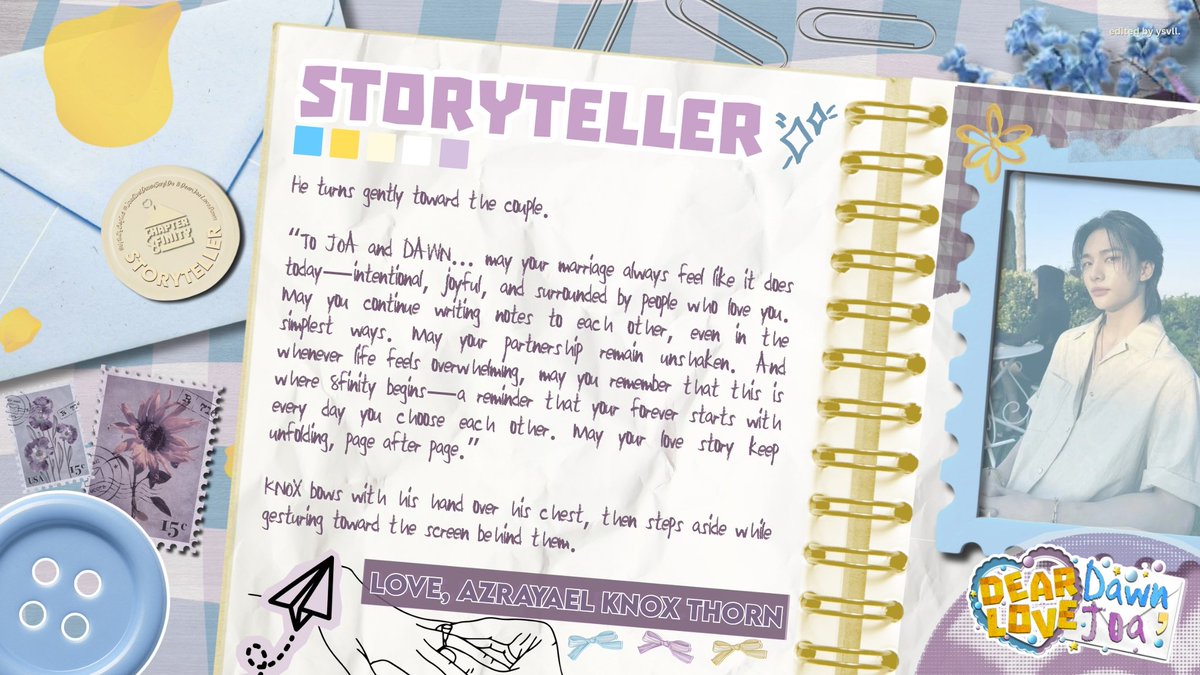 edited by ysvll.
STORYTELLER
He turns gently toward the couple.
"To JOA and DAWN... may your marriage always feel like it does
today—intentional, joyful, and surrounded by people who love you.
May you continue writing notes to each other, even in the
simplest ways. May your partnership remain unshaken. And
whenever life feels overwhelming, may you remember that this is
where 8finity begins—a reminder that your forever starts with
every day you choose each other. May your love story keep
unfolding, page after page."
KNOX bows with his hand over his chest, then steps aside while
gesturing toward the screen behind them.
LOVE, AZRAYAEL KNOX THORN
CHAPTER
8FINITY
STORYTELLER
USA
15c
15c
DEAR
LOVE
Dawn
Joa